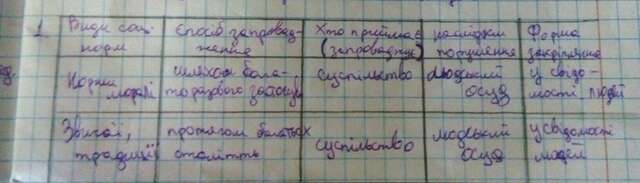 1.
Види соц.
норм
Спосіб запровад-
ження
Хто приймає
(запроваджує)
наслідки
порушення
Форма
закріплення
Норми
моралі
шляхом бага-
торазового застосув
суспільство
людський
осуд
у свідо-
мості людей
Звичаї,
традиції
протягом багатьох
століть
суспільство
людський
осуд
у свідомості
людей